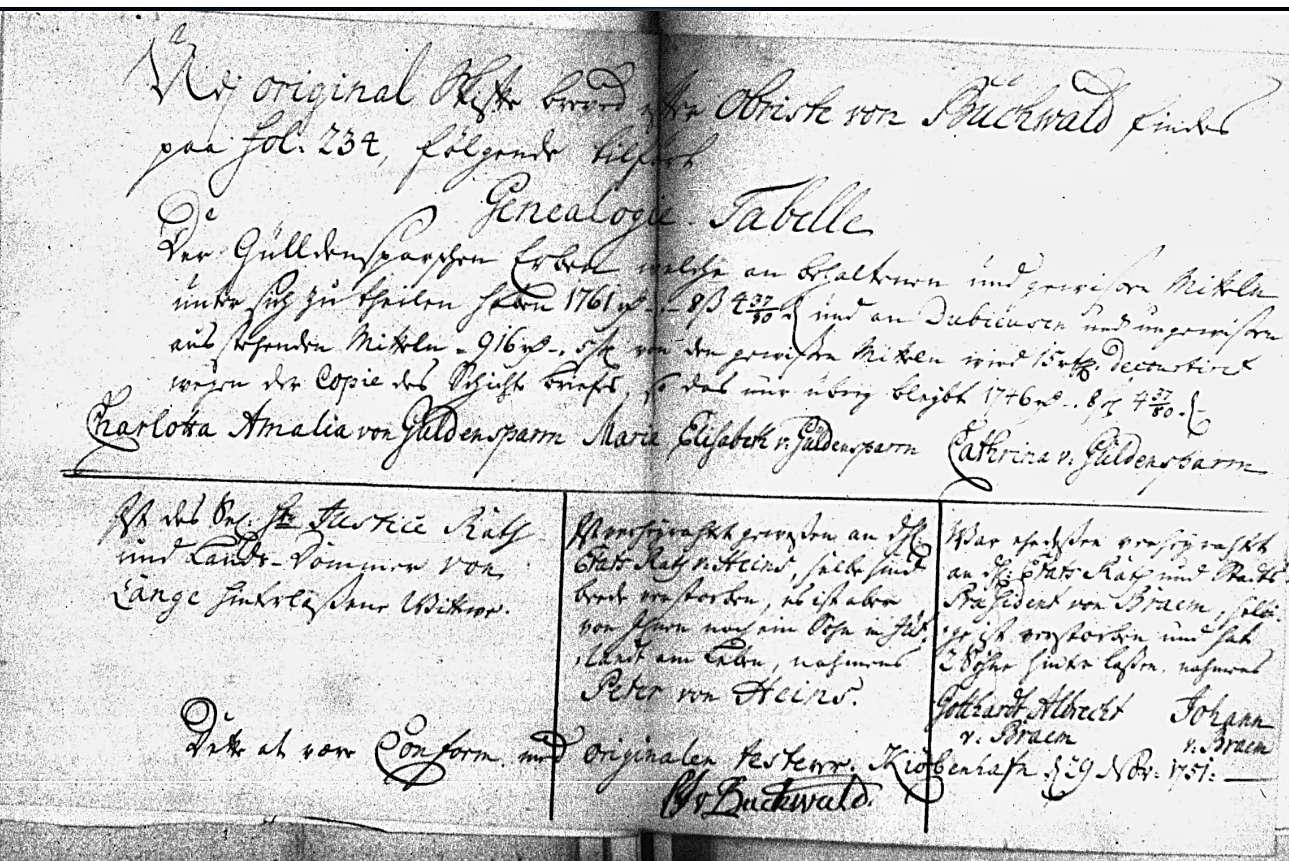 Udj original Skifte brevet efter Obriste von Buchwald findes
paa Fol. 234, følgende tilført
Genealogie Tabelle
Der Gülldensparschen Erben welche an behaltenen und gewissen Mitteln
unter sich zu theilen haben 1761 8ß 4 37/80 und an Dubieusen und ungewissen
aus stehenden Mitteln 916 von den gewissen Mitteln wird 15 decourtiret
wegen der Copie des Schicht briefes, so das nur übrig bleibt 1746 8 4 37/80
Charlotta Amalia von Güldensparm Maria Elisabeth v. Güldensparm Cathrina v. Güldensparm
Ist des Sel. Hr Justice Rath
und Lands-Dommer von
Lange hinterlassene Wittwe.
Ist verheyrahtet gewesen an
Etats Rath v. Heins, selbe sind
beede verstorben, es ist aber
von Ihnen noch ein Sohn in Jüt
landt am Leben, nahmens
Peter von Heins.
War ehedessen verheyrahtet
an Etats Rath und Stadts
Præsident von Braem, selbi-
ge ist verstorben und hat
2 Söhne hinterlassen, nahmens
Gotthardt Albrecht Johann
v. Braem v. Braem
Dette at være Conform med originalen testerer. Kiøbenhafn d 29 Nov: 1751.
v Buchwald.